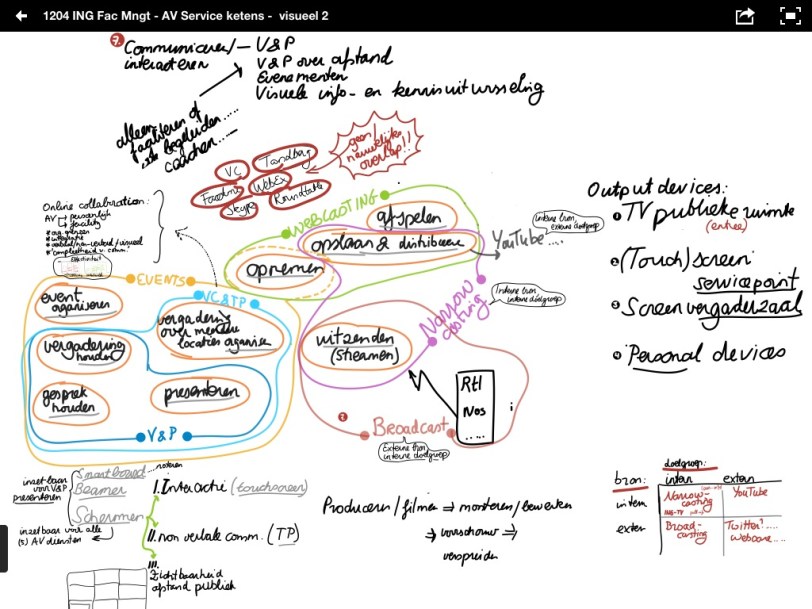 1204 ING Fac Mngt - AV Service ketens - visueel 2
7. Communiceren/ — V&P
interacteren
V&P over afstand
Evenementen
Visuele info- en kennisuitwisseling
alleen
faciliteren of
begeleiden.....
coachen.....
geen/
nauwelijks
overlap!!
VC
Tandberg
WebEx
Skype
Roundtable
Online collaboration:
AV
WEBCASTING
afspelen
opslaan & distribueren
opnemen
YouTube....
Interne bron,
externe doelgroep
EVENTS
event
organiseren
VC&TP
vergadering
over meerdere
locaties organise
vergadering
houden
gesprek
houden
presenteren
V&P
Narrow
casting
Interne bron
interne doelgroep
uitzenden
(streamen)
Broadcast
Externe bron
interne doelgroep
Rtl
Nos
.....
Output devices:
TV publieke ruimte
(entree)
(Touch)screen
servicepoint
Screen vergaderzaal
Personal devices
inzetbaar
voor V&P
presenteren
Smartboard
...noteren
Beamer
Schermen
inzetbaar voor alle
(5) AV diensten
I. Interactie (touchscreen)
II. non verbale comm. (TP)
III.
Zichtbaarheid
afstand publiek
Produceren/filmen ⇒ monteren/bewerken
⇒ ⇒
verspreiden
doelgroep:
bron: intern extern
intern Narrow-
casting YouTube
extern Broad-
casting Twitter?....